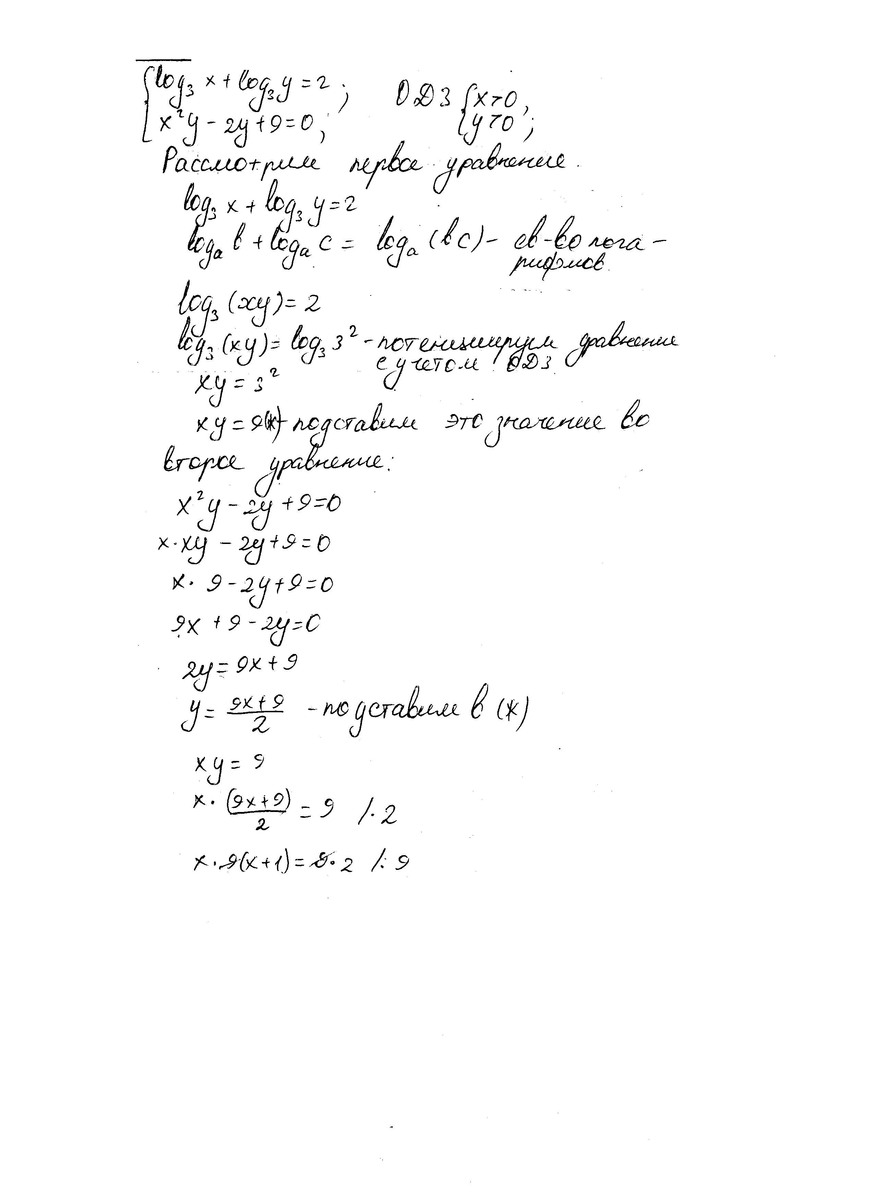 {log₃ x + log₃ y = 2 ; ОДЗ {x>0,
{x²y - 2y + 9 = 0, {y>0 ;
Рассмотрим первое уравнение.
log₃ x + log₃ y = 2
logₐ b + logₐ c = logₐ (bc) - св-во лога-
рифмов
log₃ (xy) = 2
log₃ (xy) = log₃ 3² - потенциируем уравнение
с учетом ОДЗ
xy = 3²
xy = 9(*) - подставим это значение во
второе уравнение:
x²y - 2y + 9 = 0
x·xy - 2y + 9 = 0
x· 9 - 2y + 9 = 0
9x + 9 - 2y = 0
2y = 9x + 9
y = (9x + 9)/2 - подставим в (*)
xy = 9
x · (9x + 9)/2 = 9 /· 2
x · 9(x + 1) = 9 · 2 /: 9